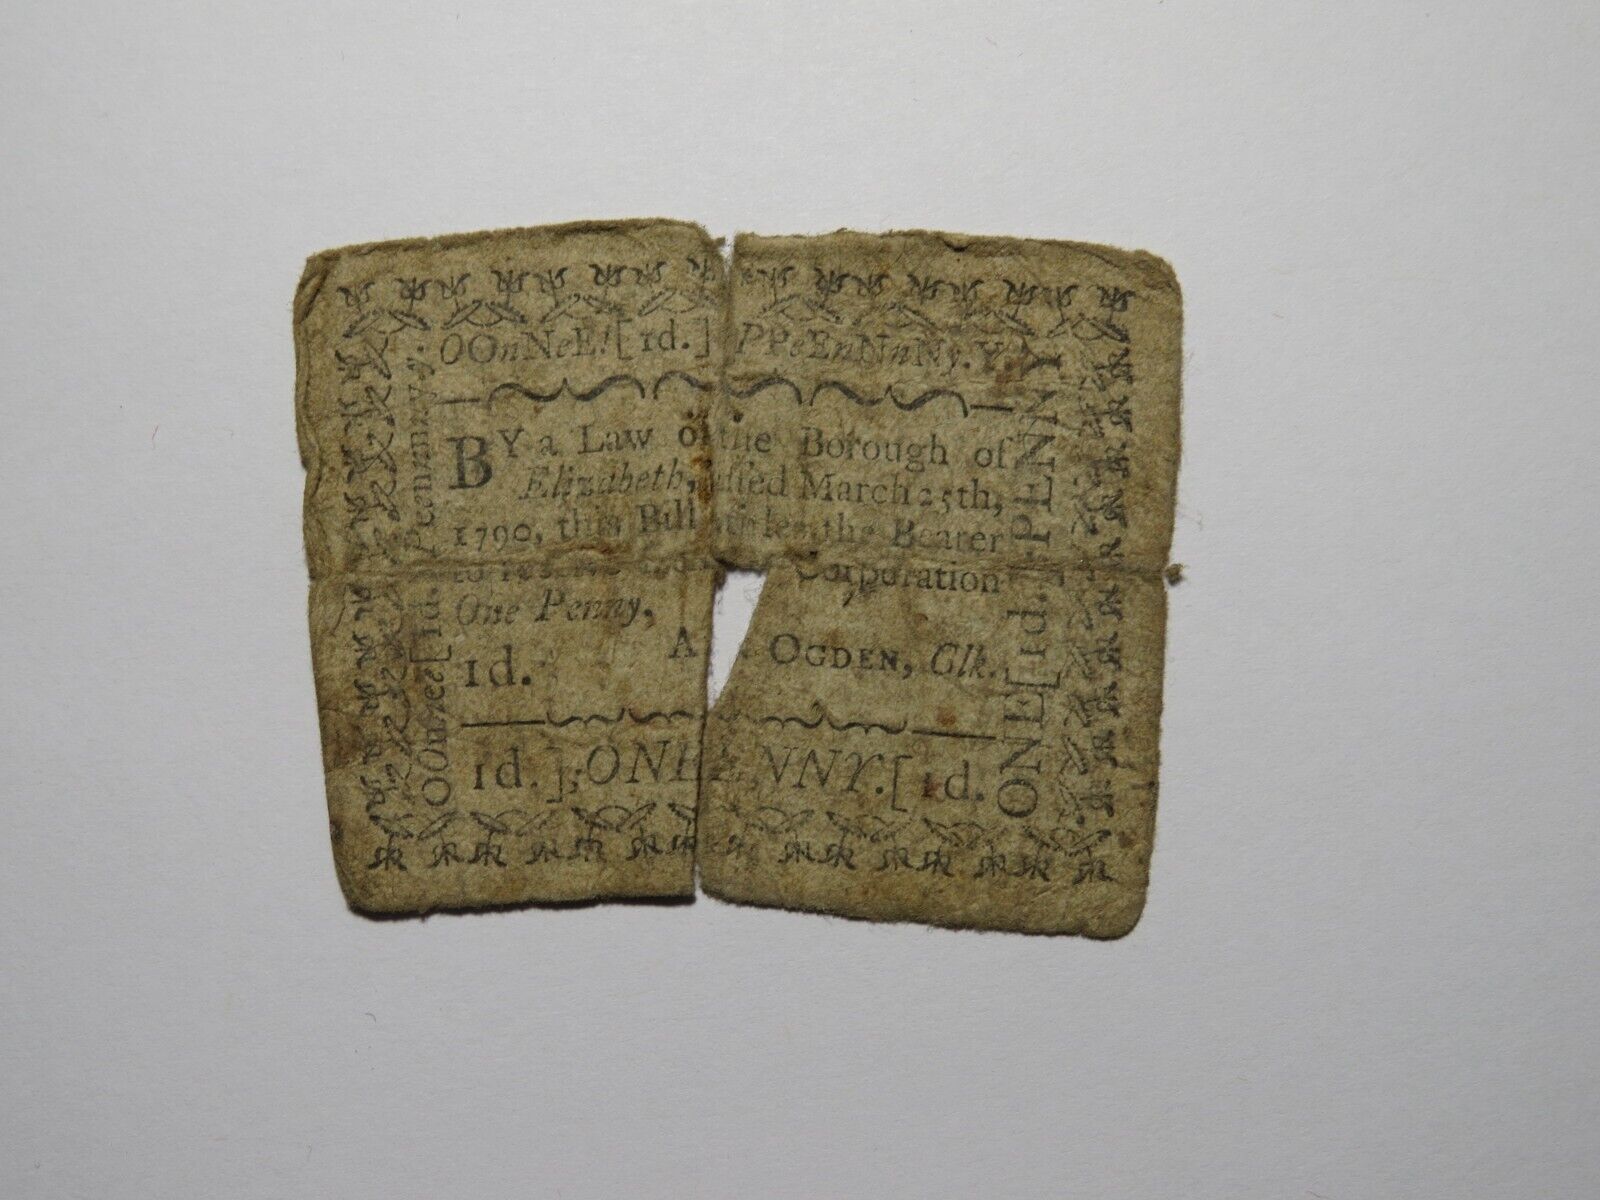 OOnNeE![1d.] PPeEnNnNy.Y.
BY a Law o the Borough of
Elizabeth, ssed March 25th,
1790, this Bill titles the Bearer
to receive Corporation
One Penny,
1d. A OGDEN, Clk.
1d.];ONE NNY.[1d.
OOnnee[1d.]Peannnnyy.
ONE[1d.]PENNY